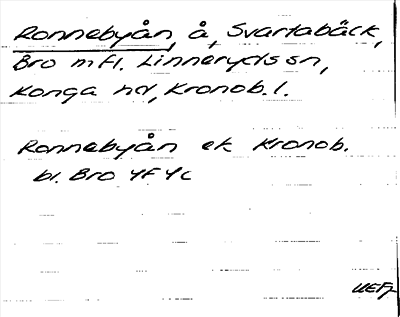 Ronnebyån, å, Svartabäck,
Bro m fl. Linneryds sn,
Konga hd, Kronob. l.
Ronnebyån ek Kronob.
bl. Bro 4F4c